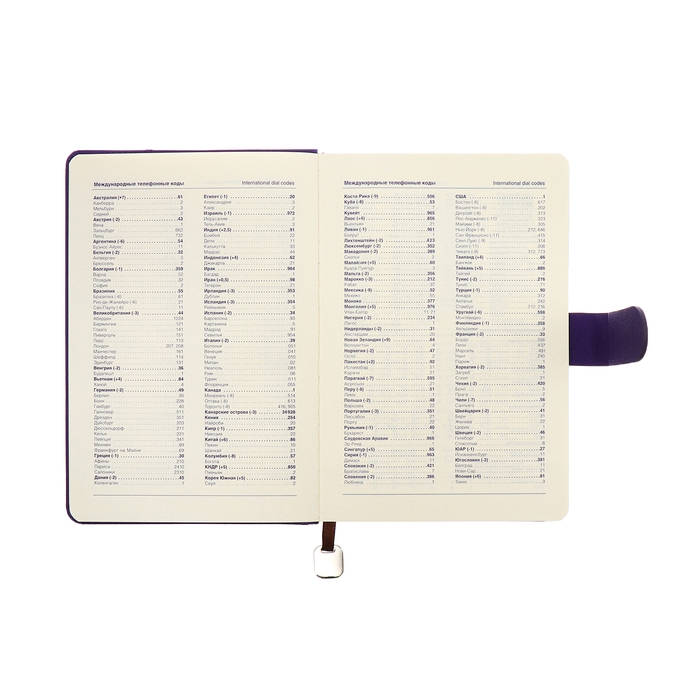 Международные телефонные коды International dial codes
Австралия (+7) 61
Канберра 2
Мельбурн 3
Сидней 2
Австрия (-2) 43
Вена
Зальцбург 662
Линц
Аргентина (-6) 54
Буэнос-Айрес 11
Бельгия (-2) 32
Антверпен 3
Брюссель 2
Болгария (-1) 359
Варна 52
Пловдив 32
София 2
Бразилия 55
Бразилия (-6) 61
Рио-де-Жанейро (-6) 21
Сан-Паулу (-6) 11
Великобритания (-3) 44
Абердин 1224
Бирмингем 121
Глазго 141
Ливерпуль 151
Лидс 113
Лондон 207, 208
Манчестер 161
Шеффилд 114
Эдинбург 131
Венгрия (-2) 36
Будапешт 1
Вьетнам (+4) 84
Ханой 4
Германия (-2) 49
Берлин 30
Бонн 228
Гамбург 40
Ганновер 511
Дрезден 351
Дуйсбург 203
Дюссельдорф 211
Кельн 221
Лейпциг 341
Мюнхен 89
Франкфурт на Майне 69
Греция (-1) 30
Афины 21
Лариса 2410
Салоники 2310
Дания (-2) 45
Копенгаген 1
Египет (-1) 20
Александрия 3
Каир 2
Израиль (-1) 972
Иерусалим 2
Тель-Авив 3
Индия (+2,5) 91
Бомбей 22
Дели 11
Калькутта 33
Мадрас 44
Индонезия (+4) 62
Джакарта 21
Ирак 964
Багдад 1
Иран (+0,5) 98
Тегеран 21
Ирландия (-3) 353
Дублин 1
Исландия (-3) 354
Рейкьявик 1
Испания (-2) 34
Барселона 93
Картахена 5
Мадрид 91
Севилья 954
Италия (-2) 39
Болонья 051
Венеция 041
Генуя 010
Милан 02
Неаполь 081
Рим 06
Турин 011
Флоренция 055
Канада 1
Монреаль (-8) 514
Оттава (-8) 613
Торонто (-8) 416, 905
Канарские острова (-3) 34928
Кения 254
Найроби 20
Кипр (-1) 357
Никосия 22
Китай (+5) 86
Пекин 10
Шанхай 21
Колумбия (-8) 57
Богота 1
КНДР (+5) 850
Пхеньян 2
Корея Южная (+5) 82
Сеул 2
Международные телефонные коды International dial codes
Коста Рика (-9) 506
Куба (-8) 53
Гавана 7
Кувейт 965
Лаос (+4) 856
Вьентьян 21
Ливан (-1) 961
Бейрут 1
Лихтенштейн (-2) 423
Люксембург (-2) 352
Македония (-2) 389
Скопье 2
Малайзия (+5) 60
Куала-Лумпур 3
Мальта (-2) 356
Марокко (-3) 212
Рабат 37
Мексика (-9) 52
Мехико 55
Монако 377
Монголия (+5) 976
Улан-Батор 11, 21
Нигерия (-2) 234
Лагос 1
Нидерланды (-2) 31
Амстердам 20
Новая Зеландия (+9) 64
Веллингтон 4
Норвегия (-2) 47
Осло 2
Пакистан (+2) 92
Исламабад 51
Карачи 21
Парагвай (-7) 595
Асунсьон 21
Перу (-8) 51
Лима 1
Польша (-2) 48
Варшава 22
Португалия (-3) 351
Лиссабон 21
Порту 22
Румыния (-1) 40
Бухарест 1
Саудовская Аравия 966
Эр-Рияд 1
Сингапур (+5) 65
Сирия (-1) 963
Дамаск 11
Словакия (-2) 421
Братислава 2
Словения (-2) 386
Любляна 1
США 1
Бостон (-8) 617
Вашингтон (-8) 202
Детройт (-8) 313
Лос-Анджелес (-11) 323
Майами (-8) 305
Нью-Йорк (-8) 212, 646
Сан-Франциско (-11) 415
Сент-Луис (-9) 314
Сиэтл (-11) 206
Чикаго (-9) 312, 773
Таиланд (+4) 66
Бангкок 2
Тайвань (+5) 886
Тайпей 2
Тунис (-2) 216
Тунис 71
Турция (-1) 90
Анкара 312
Анталья 242
Стамбул 212, 216
Уругвай (-6) 598
Монтевидео 2
Финляндия (-1) 358
Хельсинки 9
Франция (-2) 33
Бордо 556
Лион 437
Марсель 491
Ницце 493
Париж 1
Хорватия (-2) 385
Загреб 1
Сплит 21
Чехия (-2) 420
Брно 5
Прага 2
Чили (-7) 56
Сантьяго 2
Швейцария (-2) 41
Берн 31
Женева 22
Цюрих
Швеция (-2) 46
Гетеборг 31
Стокгольм 8
ЮАР (-1) 27
Йоханнесбург 11
Югославия (-2) 381
Белград 11
Нови-Сад 21
Япония (+6) 81
Токио 3